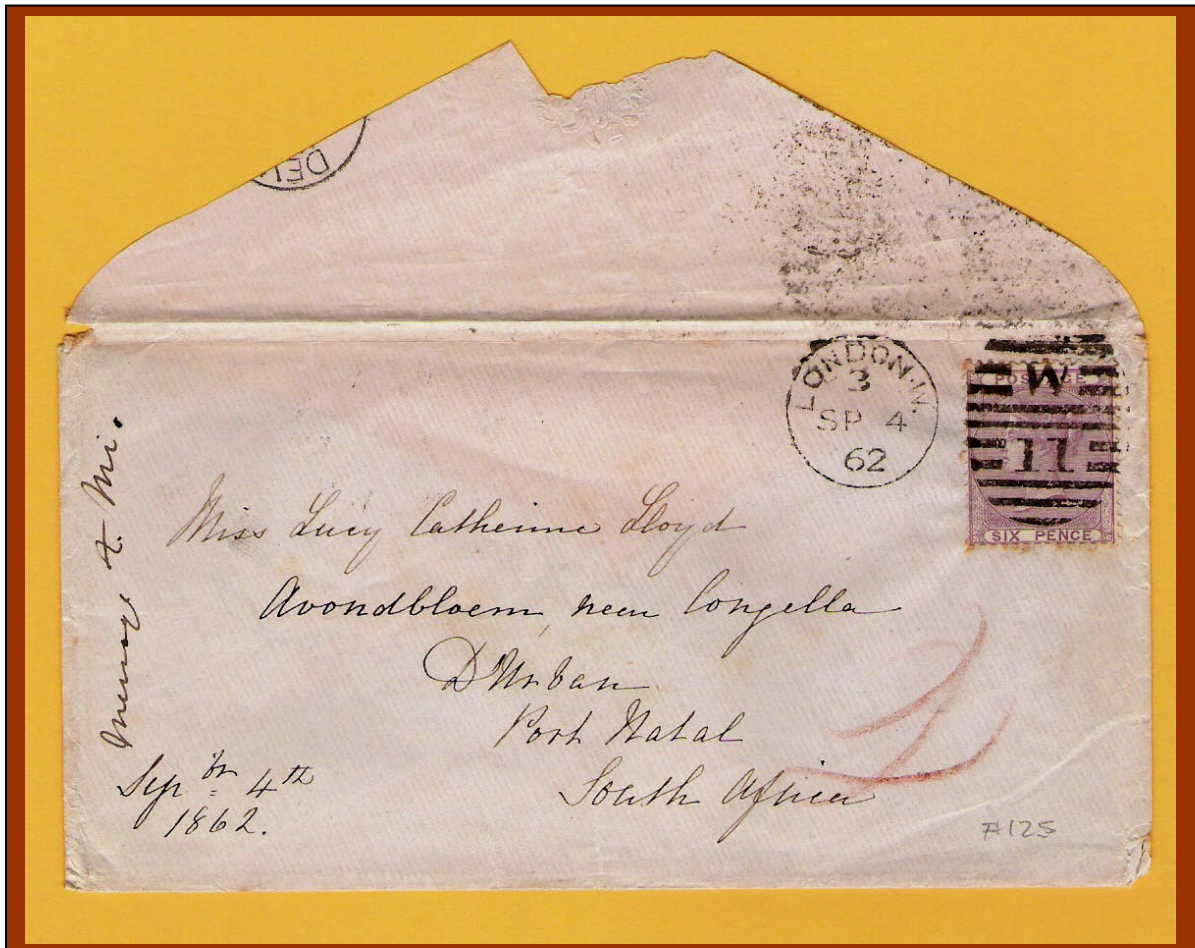 DEL
LONDON·W.
3
SP 4
62
POSTAGE
W
11
SIX PENCE
Miss Lucy Catherine Lloyd
Avondbloem, near Congella
D'Urban
Port Natal
South Africa
Sepbr 4th
1862.
#125